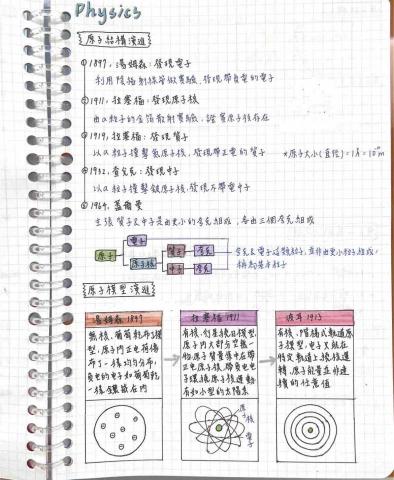 Physics
原子結構演進
1897, 湯姆森:發現電子
利用陰極射線管做實驗,發現帶負電的電子
1911, 拉塞福:發現原子核
由α粒子的金箔散射實驗,證實原子核存在
1919, 拉塞福:發現質子
以α粒子撞擊氮原子核,發現帶正電的質子
*原子大小(直徑)=1Å=10⁻¹⁰m
1932, 查兌克:發現中子
以α粒子撞擊鈹原子核,發現不帶電中子
1964, 蓋爾曼
主張質子及中子是由更小的夸克組成,各由三個夸克組成
原子
電子
原子核
質子
夸克
中子
夸克
夸克及電子這類粒子,並非由更小粒子組成,
稱為基本粒子
原子模型演進
湯姆森 1897
無核,葡萄乾布丁模
型,原子內正電荷像
布丁一樣均勻分布,
負電的電子如葡萄乾
一樣鑲嵌在內
拉塞福 1911
有核,行星繞日模型,
原子內大部分空曠,一
些原子質量集中在帶
正電原子核,帶負電電
子環繞原子核運動,
有如小型的太陽系
原子核
電子
波耳 1913
有核,階梯式軌道原
子模型,電子只能在
特定軌道上繞核運
轉,原子能量並非連
續的任意值